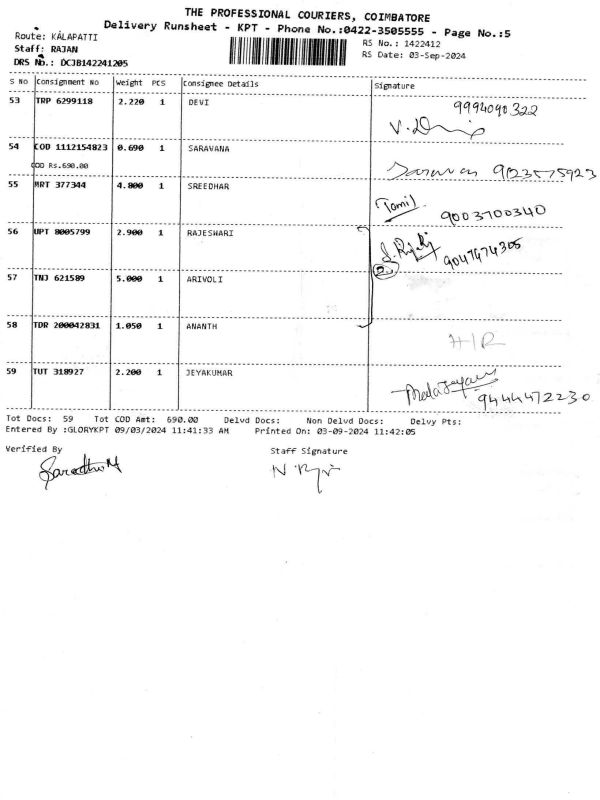 THE PROFESSIONAL COURIERS, COIMBATORE
Delivery Runsheet - KPT - Phone No.:0422-3505555 - Page No.:5
Route: KALAPATTI
RS No.: 1422412
Staff: RAJAN
RS Date: 03-Sep-2024
DRS No.: DCJB142241205
S No Consignment No Weight PCS Consignee Details Signature
53 TRP 6299118 2.220 1 DEVI 9994090322
54 COD 1112154823 0.690 1 SARAVANA
COD Rs.690.00 9123575923
55 MRT 377344 4.800 1 SREEDHAR Tamil
9003700340
56 UPT 8005799 2.900 1 RAJESHARI
2 9047674305
57 TNJ 621589 5.000 1 ARIVOLI
58 TDR 200042831 1.050 1 ANANTH
H/R
59 TUT 318927 2.200 1 JEYAKUMAR
9444472230
Tot Docs: 59 Tot COD Amt: 690.00 Delvd Docs: Non Delvd Docs: Delvy Pts:
Entered By :GLORYKPT 09/03/2024 11:41:33 AM Printed On: 03-09-2024 11:42:05
Verified By Staff Signature